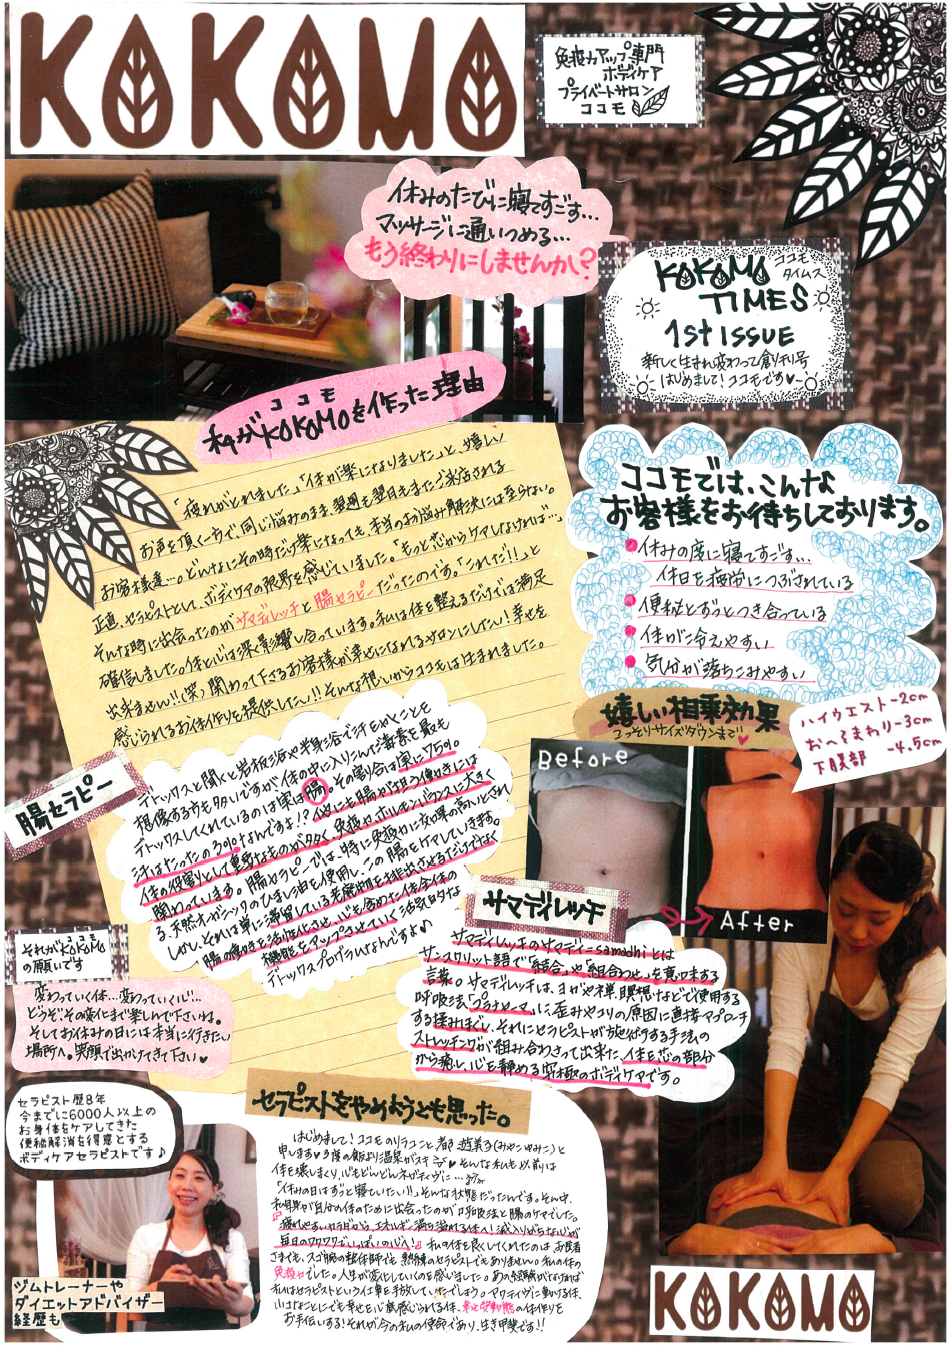 KOKOMO
免疫力アップ専門
ボディケア
プライベートサロン
ココモ
休みのたびに寝てすごす…
マッサージに通いつめる…
もう終わりにしませんか!?
KOKOMO ココモ
タイムス
TIMES
1st ISSUE
新しく生まれ変わって創刊号
はじめまして!ココモです♥
ココモ
私がKOKOMOを作った理由
「疲れがとれました」「体が楽になりました」と、嬉しい
お声を頂く一方で、同じ悩みのまま、翌週も翌月もまたご来店される
お客様達…。どんなにその時だけ楽になっても、本当のお悩み解決には至らない。
正直、セラピストとして、ボディケアの限界を感じていました。「もっと芯からケアしなければ…」
そんな時に出会ったのがサマディレッチと腸セラピーだったのです。「これだ!!」と
確信しました。体と心は深く影響し合っています。私は体を整えるだけでは満足
出来ません!!(笑)関わって下さるお客様が幸せになれるサロンにしたい!幸せを
感じられるお体作りを提供したい!!そんな想いからココモは生まれました。
ココモでは、こんな
お客様をお待ちしております。
休みの度に寝てすごす…
休日を疲労につぶされている
便秘とずっとつき合っている
体が冷えやすい
気分が落ちこみやすい
嬉しい相乗効果
こっそりサイズダウンまで♥
ハイウエスト-2cm
おへそまわり-3cm
下腹部 -4.5cm
Before
After
腸セラピー
デトックスと聞くと岩盤浴や半身浴で汗をかくことを
想像する方も多いですが、体の中に入りこんだ毒素を最も
デトックスしてくれているのは実は腸。その割合は実に75%。
汗はたったの3%なんですよ!?他にも腸が担う働きには
体の役割として重要なものが多く、免疫やホルモンバランスに大きく
関わっています。腸セラピーでは、特に免疫力に効果の高いとされ
る、天然オーガニックのひまし油を使用し、この腸をケアしていきます。
しかし、それは単に滞留している老廃物を排出させるだけでなく
腸の働きを活性化させ、心も含めた体全体の
機能をアップさせていく活気的な
デトックスプログラムなんですよ♪
サマディレッチ
サマディレッチのサマディ=samadhiとは
サンスクリット語で「結合」や「組合わせ」を意味する
言葉。サマディレッチは、ヨガや禅、瞑想などで使用する
呼吸法「プラナヤーマ」に歪みやコリの原因に直接アプローチ
する揉みほぐし、それにセラピストが施術する手法の
ストレッチングが組み合わさって出来た、体を芯の部分
から癒し、心を静める究極のボディケアです。
ココモ
それがKOKOMO
の願いです
変わっていく体…変わっていく心…
どうぞその変化まで楽しんで下さいね。
そしてお休みの日には本当に行きたい
場所へ。笑顔で出かけてきて下さい♥
セラピスト歴8年
今までに6000人以上の
お身体をケアしてきた
便秘解消を得意とする
ボディケアセラピストです♪
ジムトレーナーや
ダイエットアドバイザー
経歴も
セラピストをやめようとも思った。
はじめまして!ココモのリラコこと都
申します♡3度の飯より温泉がスキ♥そんな私も以前は
体を壊しまくり、心もどんどんネガティヴに…
「休みの日はずっと寝ていたい!!」そんな状態だったんです。そんな中、
私自身が自分の体のために出会ったのが呼吸法と腸のケアでした。
『疲れやすいカラダから、エネルギー満ち溢れる体へ!滅入りがちな心が
毎日のワクワクでいっぱいの心へ!』私の体を良くしてくれたのは、お医者
さまでも、スゴ腕の整体師でも、熟練のセラピストでもありません。私の体の
免疫力でした。人生が変化していくのを感じました。あの経験がなければ
私はセラピストという仕事を手放していたでしょう。アクティヴに動ける体、
小さなことにでも幸せを心底感じられる体、幸せ受動態の体作りを
お手伝いする!それが今の私の使命であり、生き甲斐です!!
KOKOMO